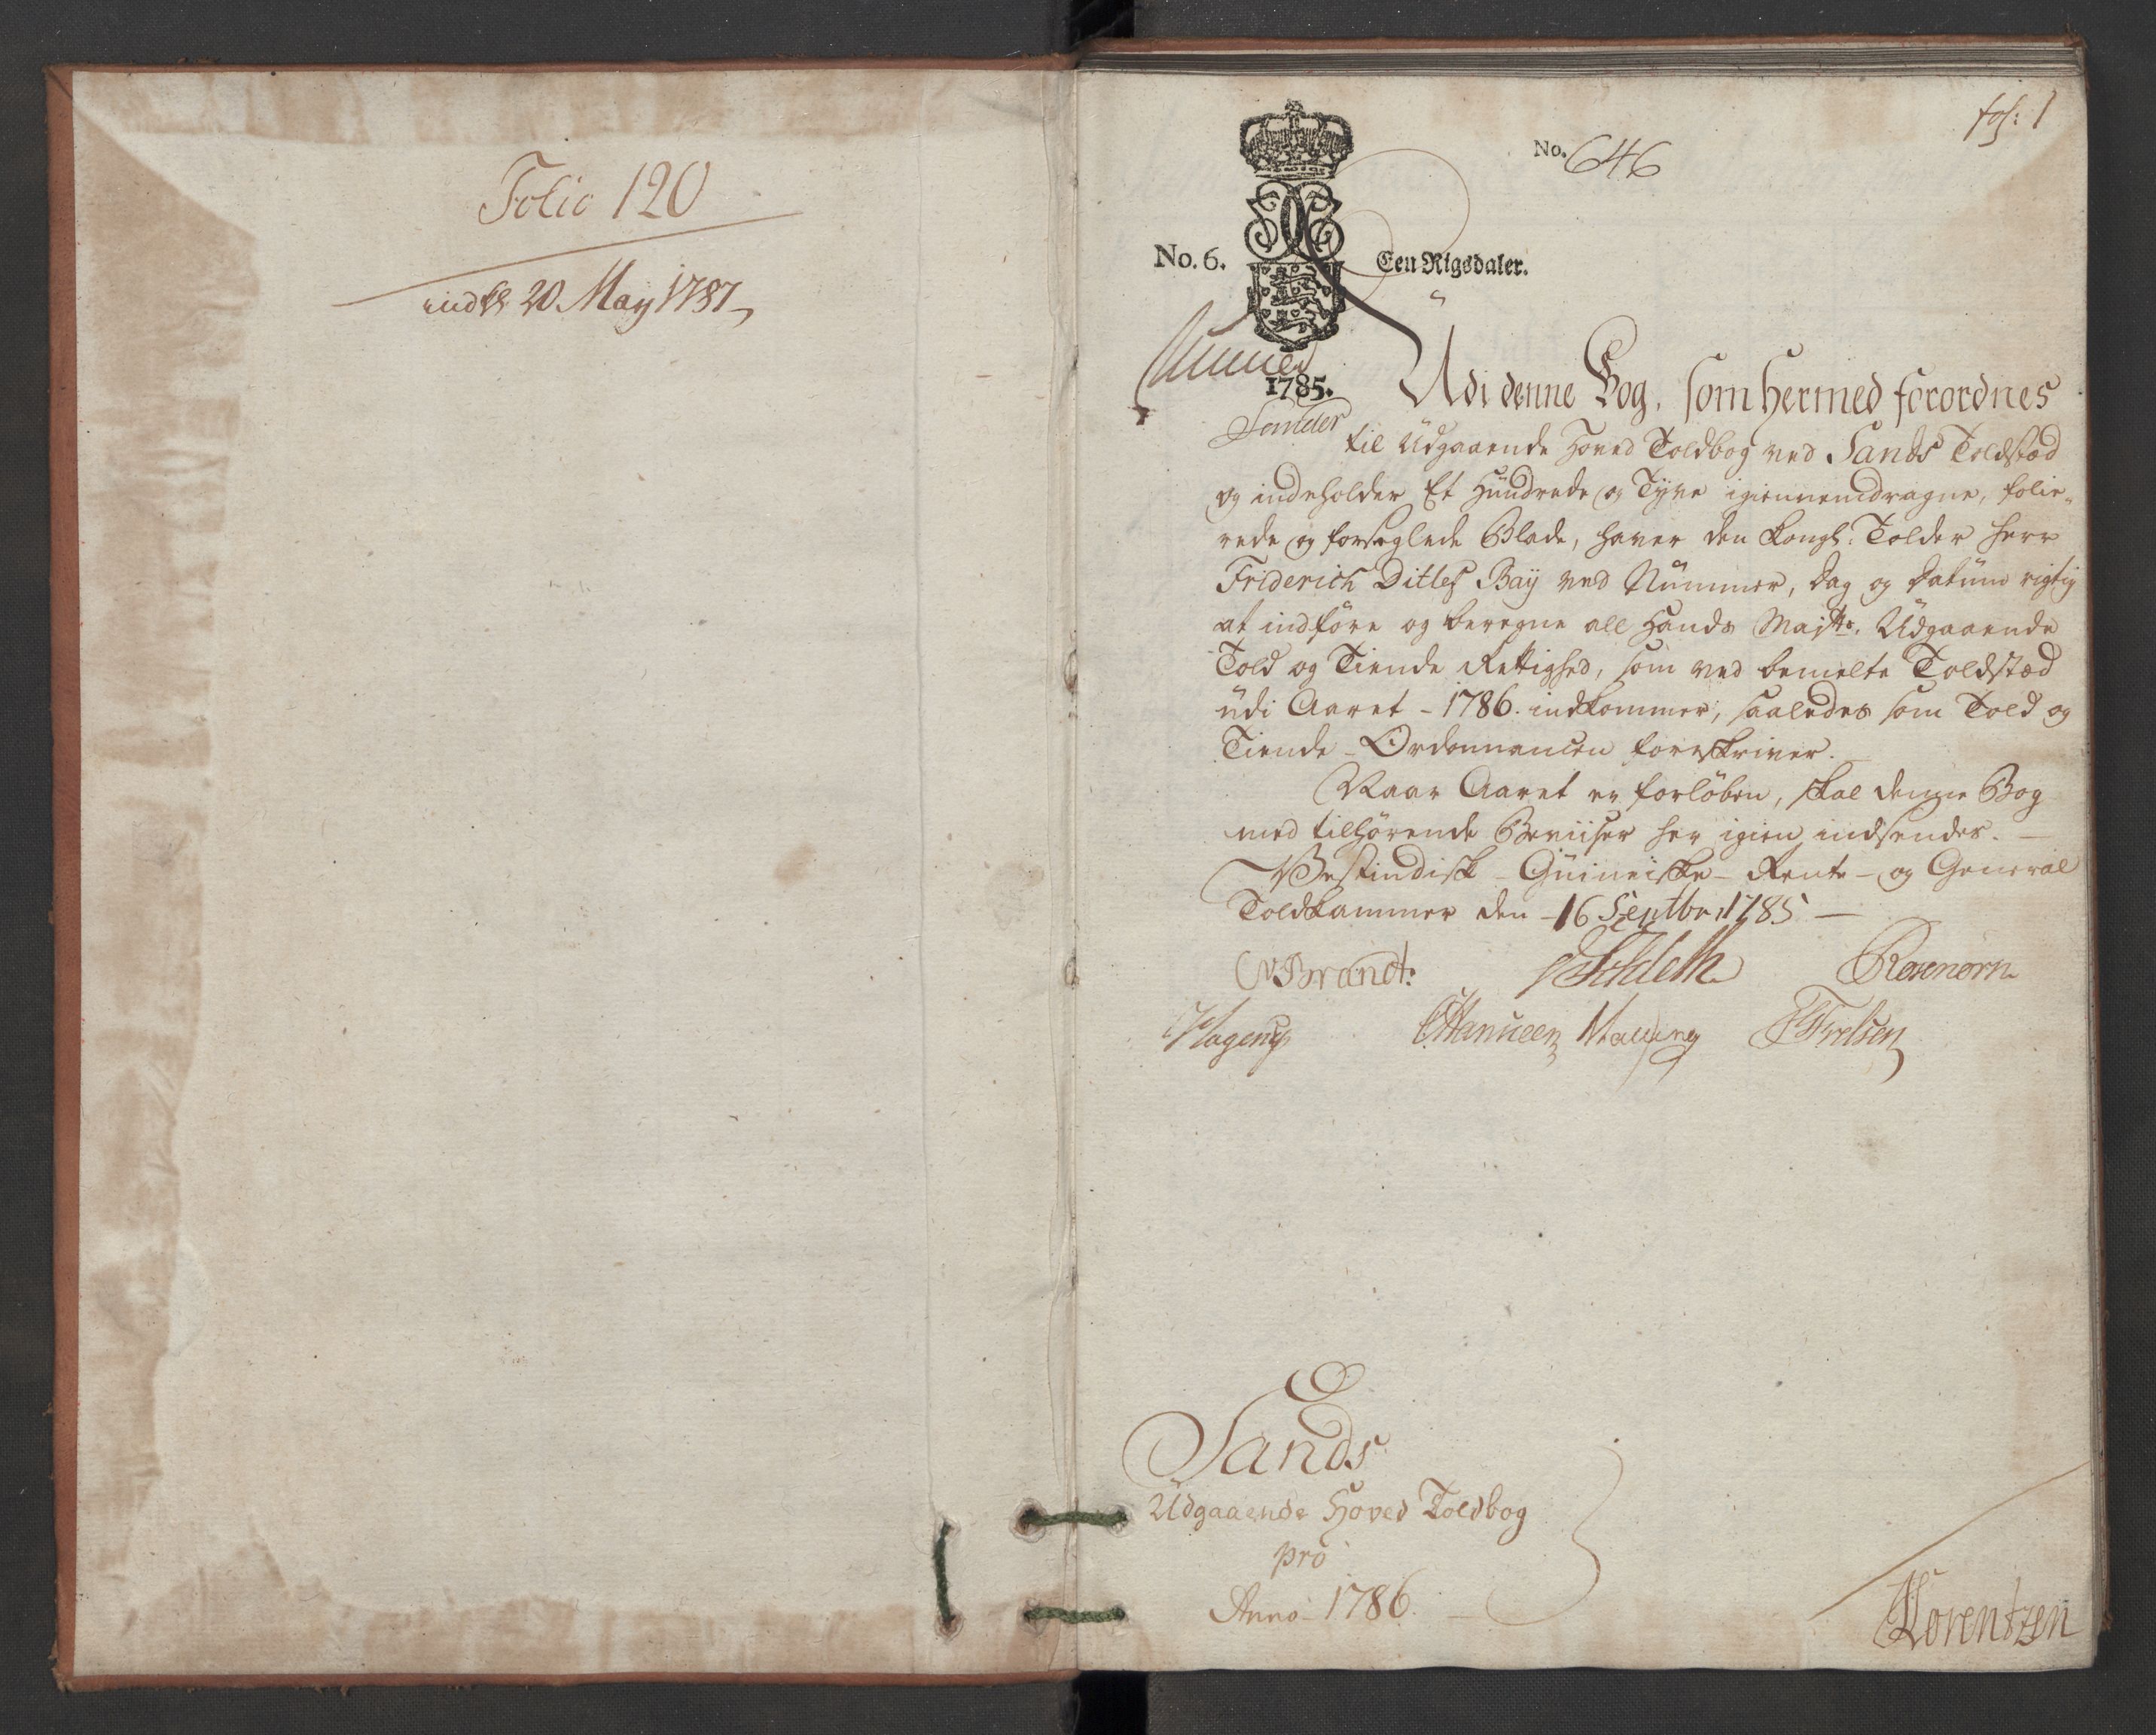 Folio 120
indk 20. May 1787
fol: 1
No. 646
No. 6. Een Rigsdaler.
1785.
Udi denne Bog, som hermed forordnes
til Udgaaende Hoved Toldbog ved Sands Toldstæd
og indeholder Et Hundrede og Tyve igiennemdragne, folie-
rede og forseglede Blade, haver den Kongl. Tolder Herr
Friderich Ditlef Baÿ ved Nummer, Dag og Datum rigtig
at indføre og beregne all Hands Majts. Udgaaende
Told og Tiende Rettighed, som ved bemelte Toldstæd
udi Aaret - 1786. indkommer, saaledes som Told og
Tiende-Ordonnancen foreskriver.
Naar Aaret er forløben, skal denne Bog
med tilhørende Beviiser her igien indsendes.
Vestindisk-Guineiske-Rente- og General
Toldkammer den 16 Septbr 1785
Brandt.
Rosenørn
Hansen Malling
Sands
Udgaaende Hoved Toldbog
pro
Anno 1786.
Lorentzen